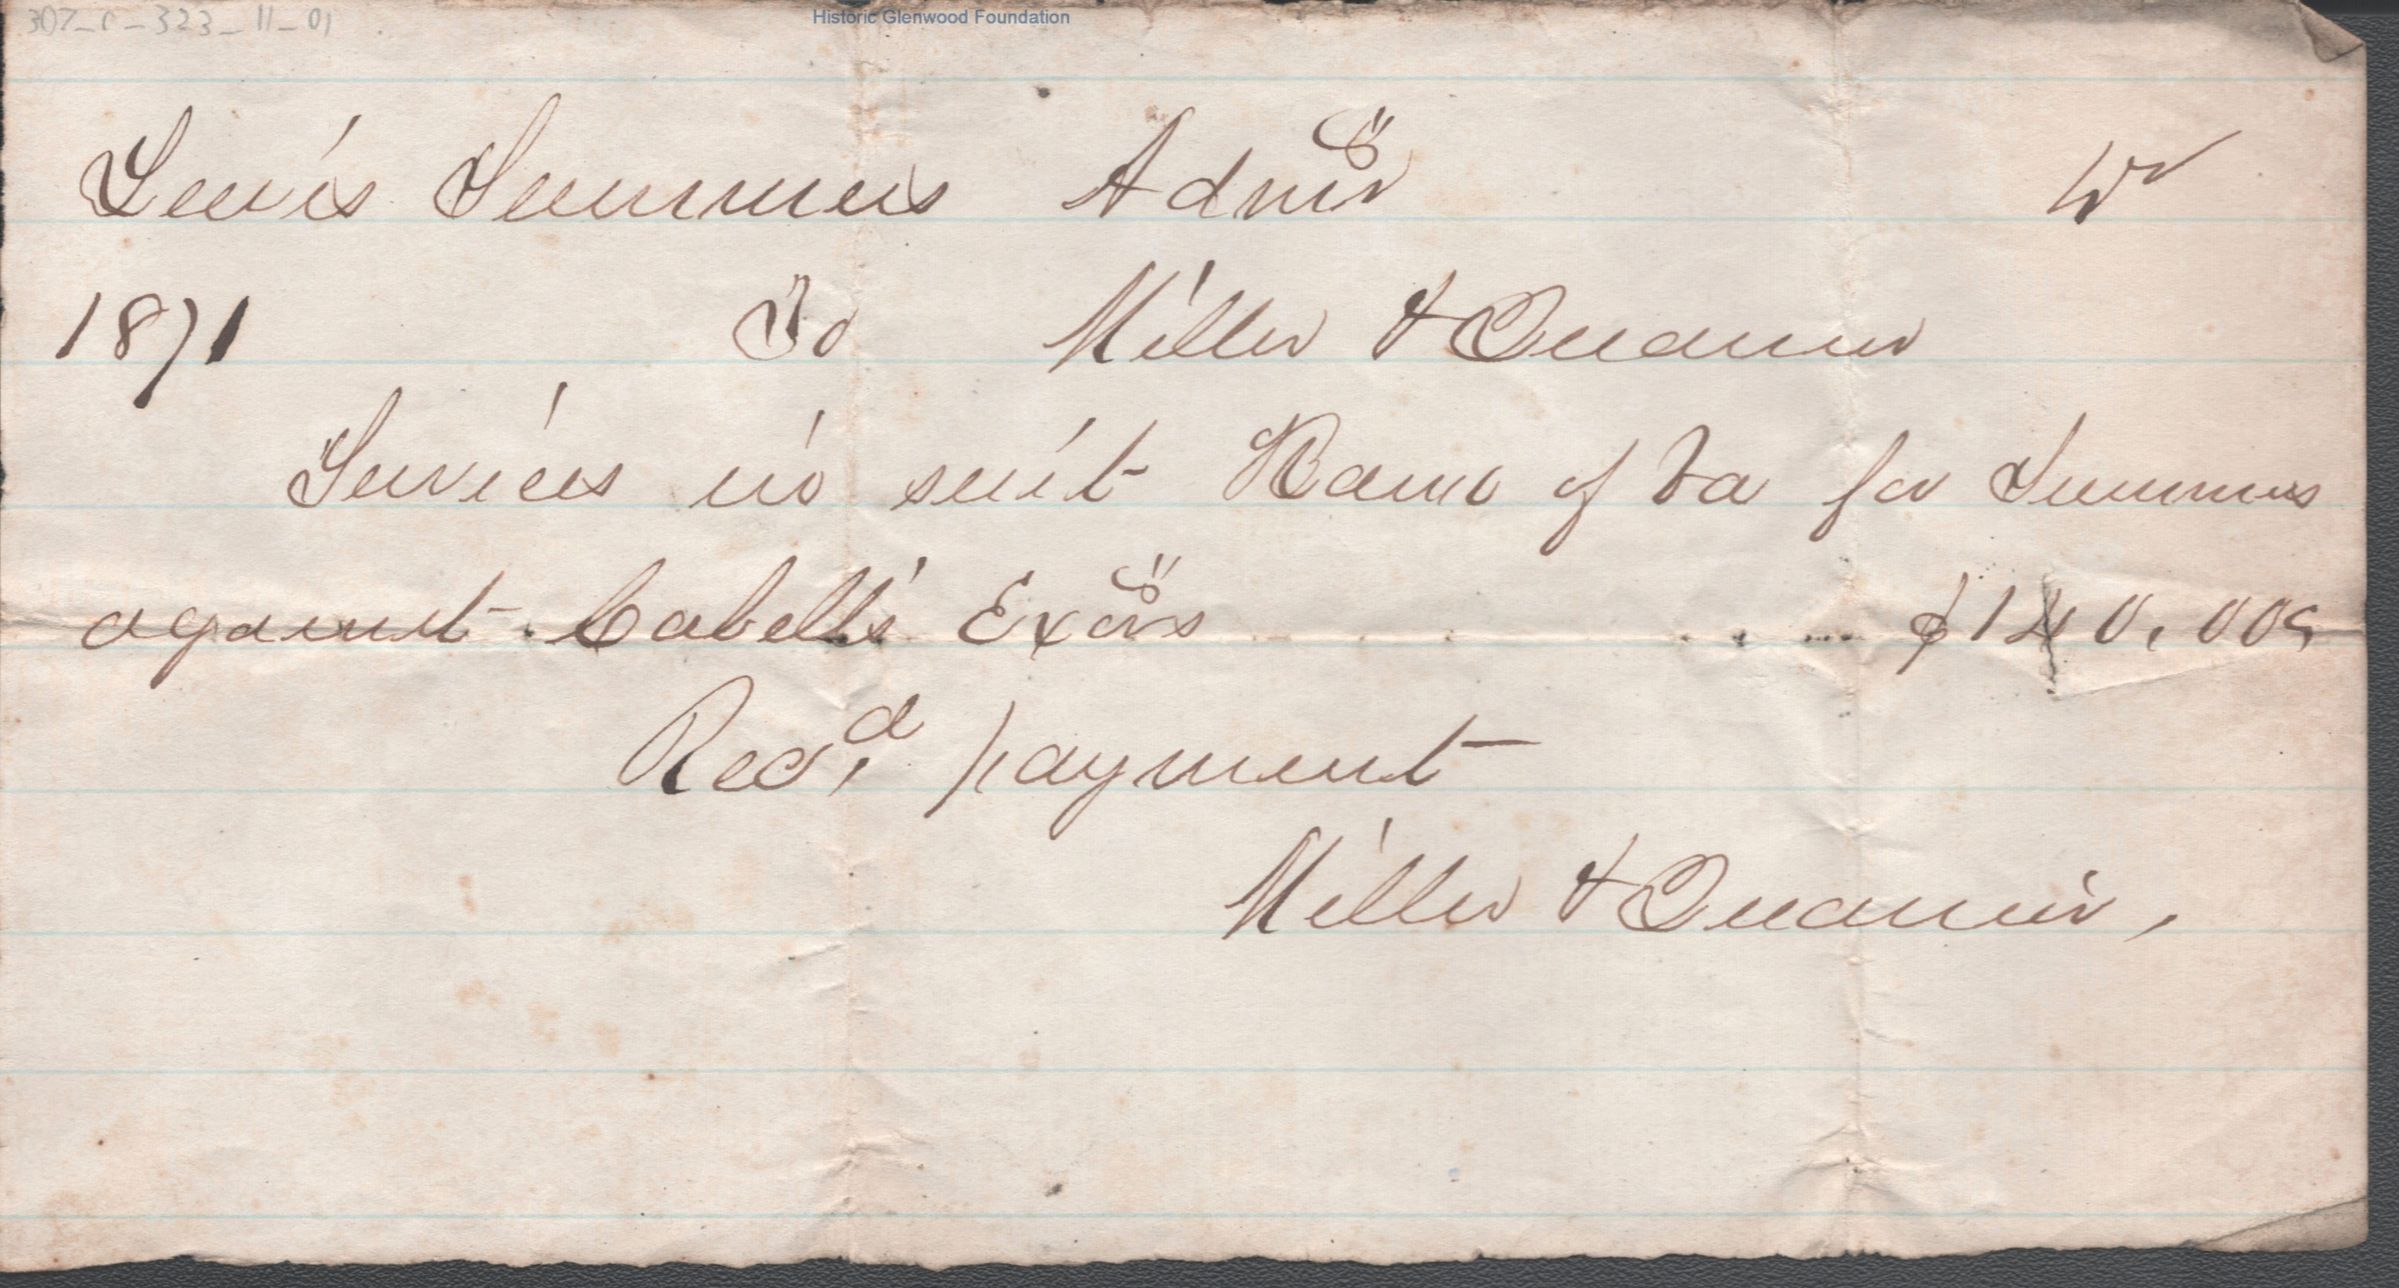 307_C_323_11_01
Historic Glenwood Foundation
Lewis Summers Admr Dr
1871 To Miller & Quarrier
Services in suit Bank of Va for Summers
against Cabell's Exors $ 00
Recd, payment
Miller & Quarrier,